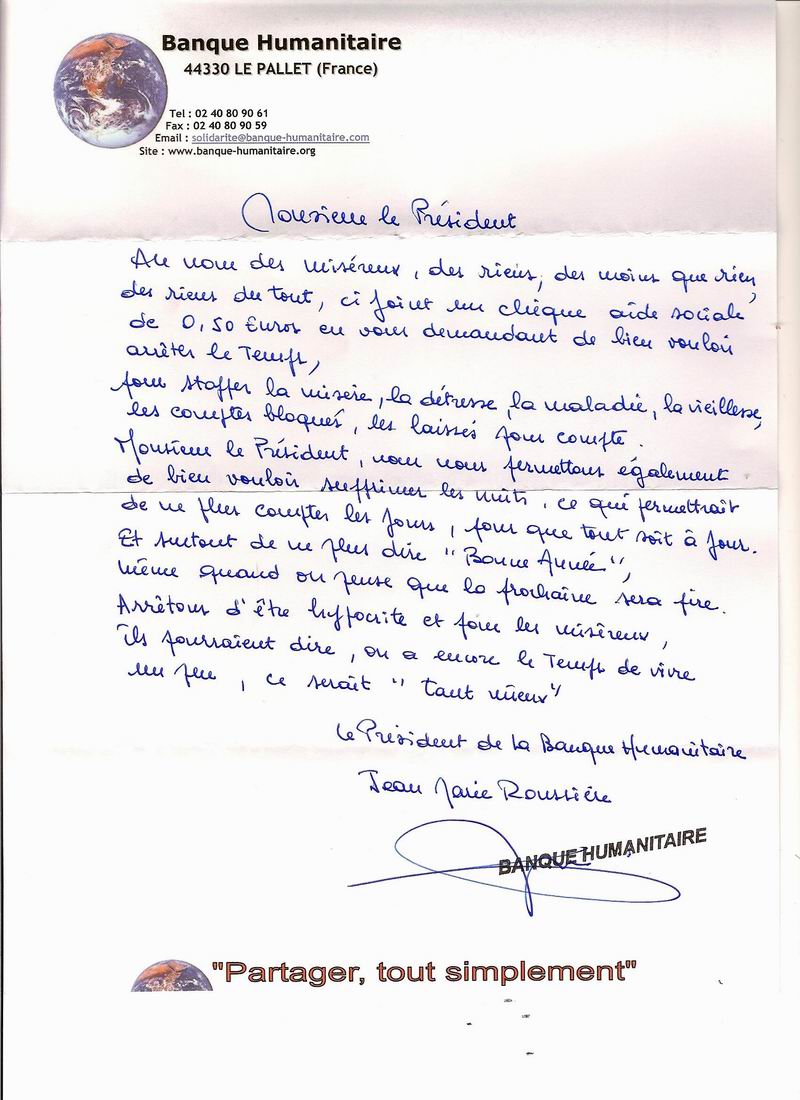 Banque Humanitaire
44330 LE PALLET (France)
Tel : 02 40 80 90 61
Fax : 02 40 80 90 59
Email : solidarite@banque-humanitaire.com
Site : www.banque-humanitaire.org
Monsieur le Président
Au nom des miséreux, des riens, des moins que rien,
des riens du tout, ci joint un chèque aide sociale
de 0,50 Euros en vous demandant de bien vouloir
arrêter le Temps,
pour stopper la misère, la détresse, la maladie, la vieillesse,
les comptes bloqués, les laissés pour compte.
Monsieur le Président, nous nous permettons également
de bien vouloir supprimer les nuits, ce qui permettrait
de ne plus compter les jours, pour que tout soit à jour.
Et surtout de ne plus dire "Bonne Année",
même quand on pense que la prochaine sera pire.
Arrêtons d'être hyppocrite et pour les miséreux,
ils pourraient dire, on a encore le Temps de vivre
un peu, ce serait "tant mieux"
Le Président de la Banque Humanitaire
Jean Marie Roussière
BANQUE HUMANITAIRE
"Partager, tout simplement"